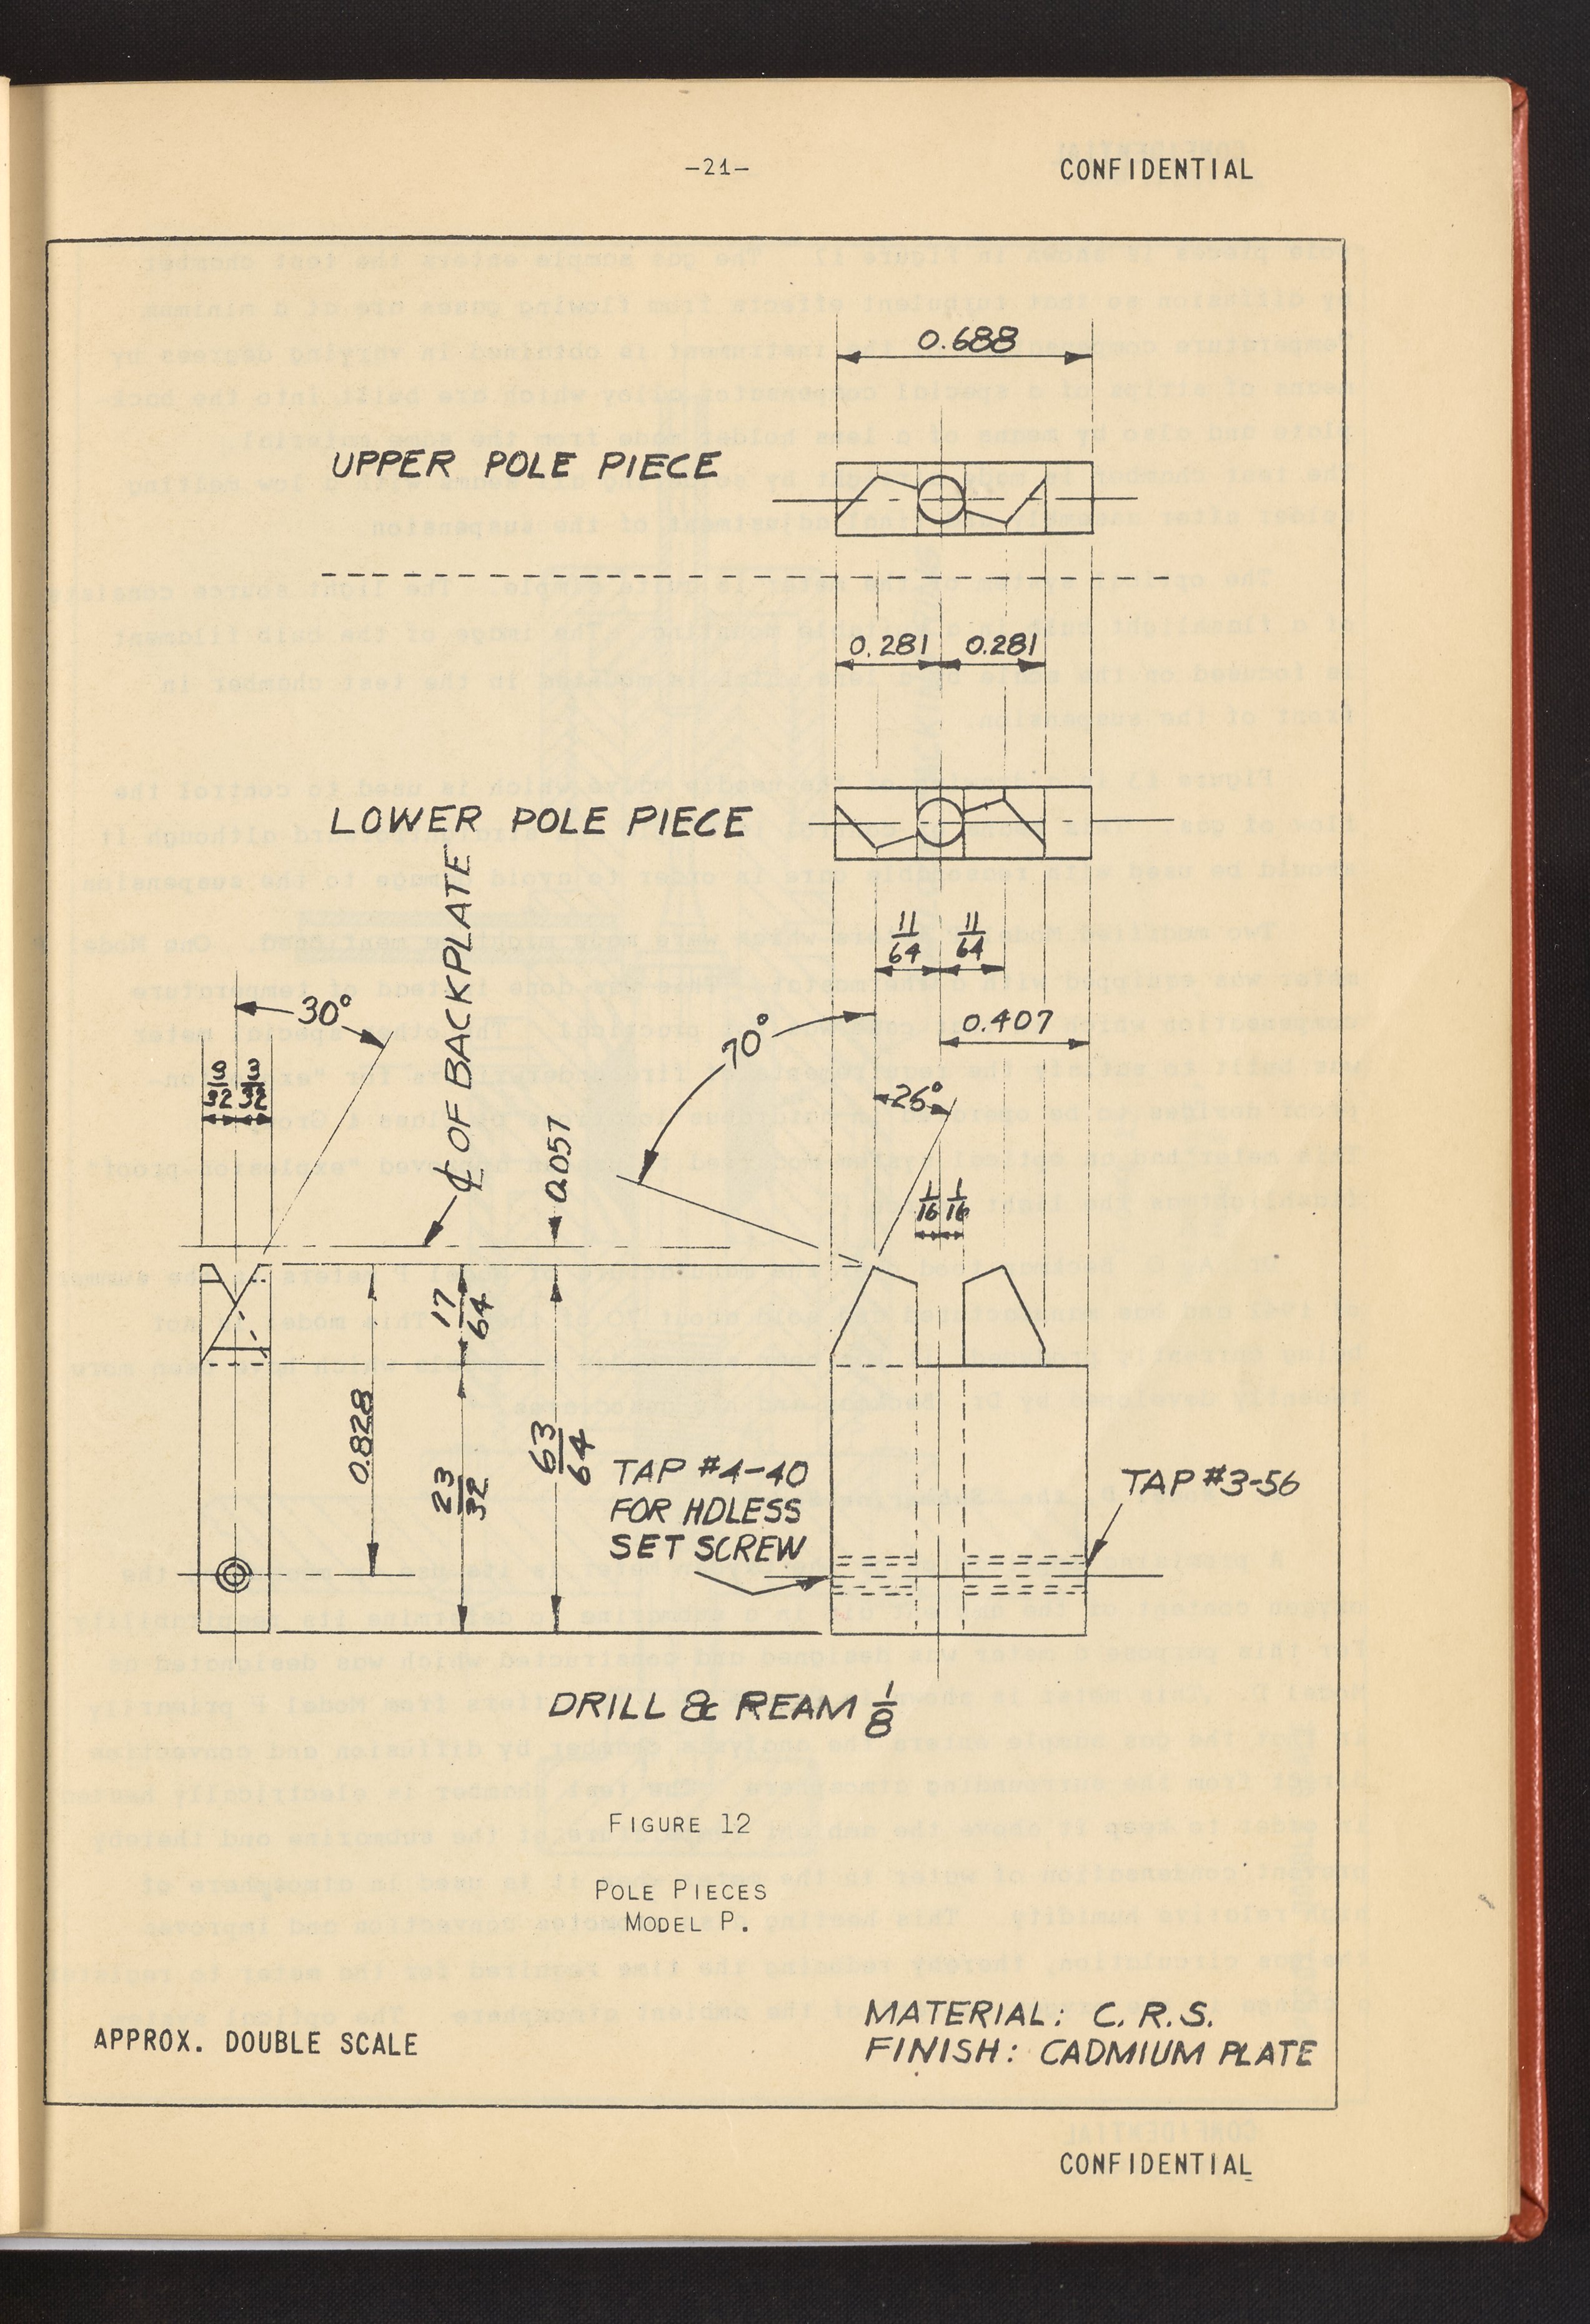 -21-
CONFIDENTIAL
0.688
UPPER POLE PIECE
0.281 0.281
LOWER POLE PIECE
11/64 11/64
℄ OF BACKPLATE
30°
70°
0.407
3/32 3/32
26°
0.057
1/16 1/16
17/64
0.828
23/32
63/64
TAP #4-40
FOR HDLESS
SET SCREW
TAP #3-56
DRILL & REAM 1/8
FIGURE 12
POLE PIECES
MODEL P.
MATERIAL: C. R. S.
FINISH: CADMIUM PLATE
APPROX. DOUBLE SCALE
CONFIDENTIAL